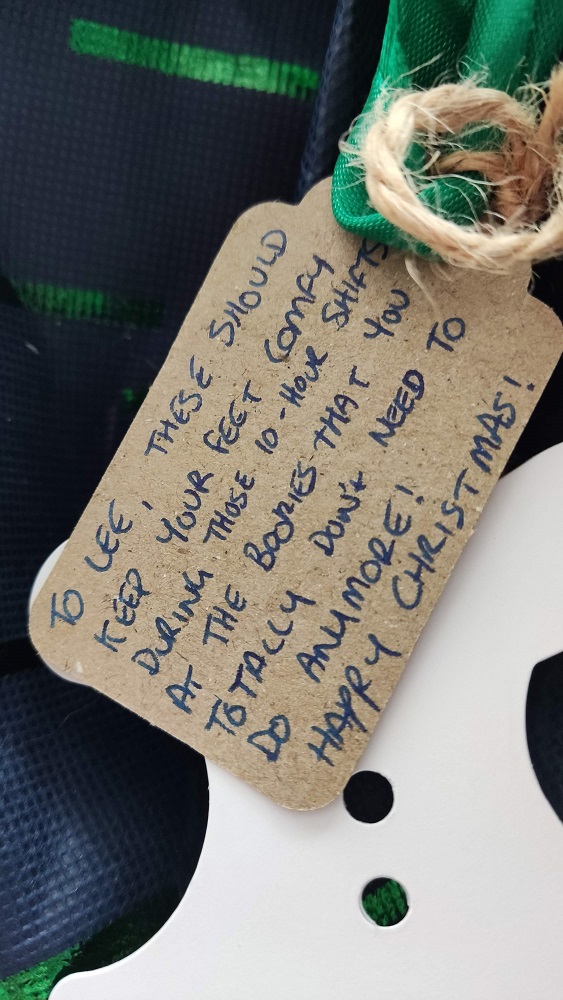 TO LEE, THESE SHOULD
KEEP YOUR FEET COMFY
DURING THOSE 10-HOUR SHIFTS
AT THE BOOKIES THAT YOU
TOTALLY DON't NEED TO
DO ANYMORE!
HAPPY CHRISTMAS!